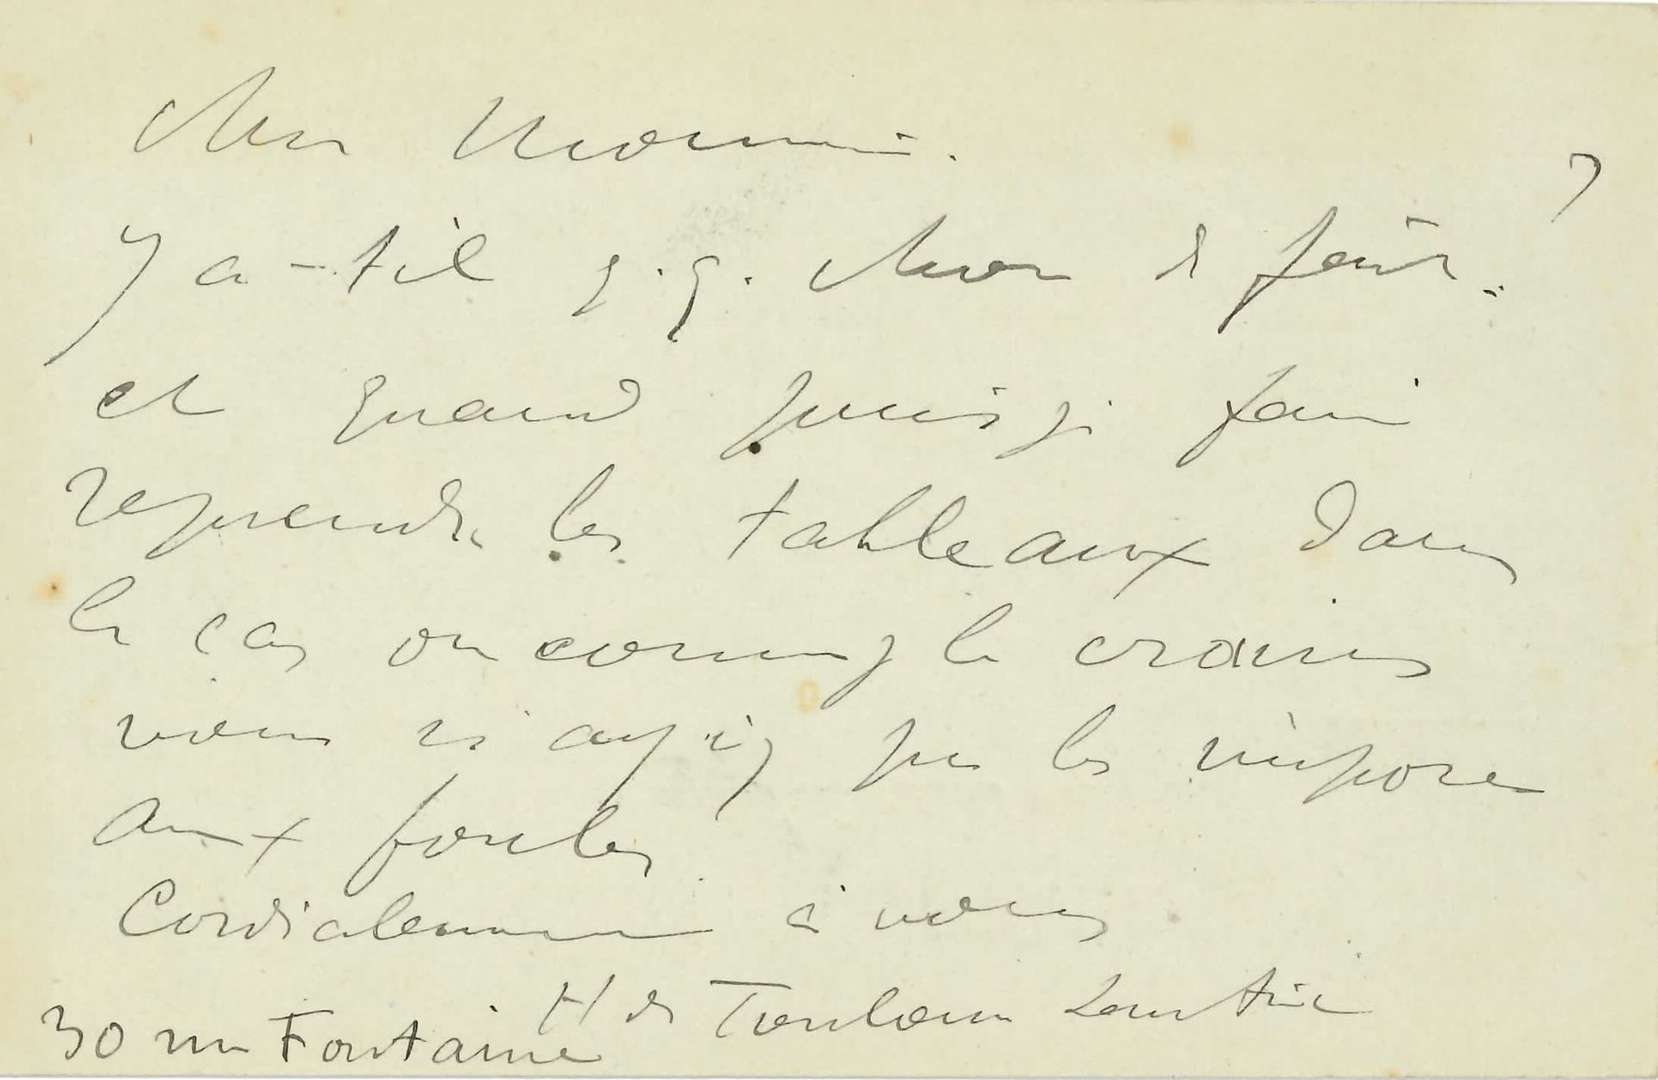 Cher Monsieur.
Y a-t-il q.q. chose de fait?
et quand puis je faire
reprendre les tableaux dans
le cas où comme je le crains
vous n'ayiez pu les imposer
aux foules
Cordialement à vous
H de Toulouse Lautrec
30 rue Fontaine